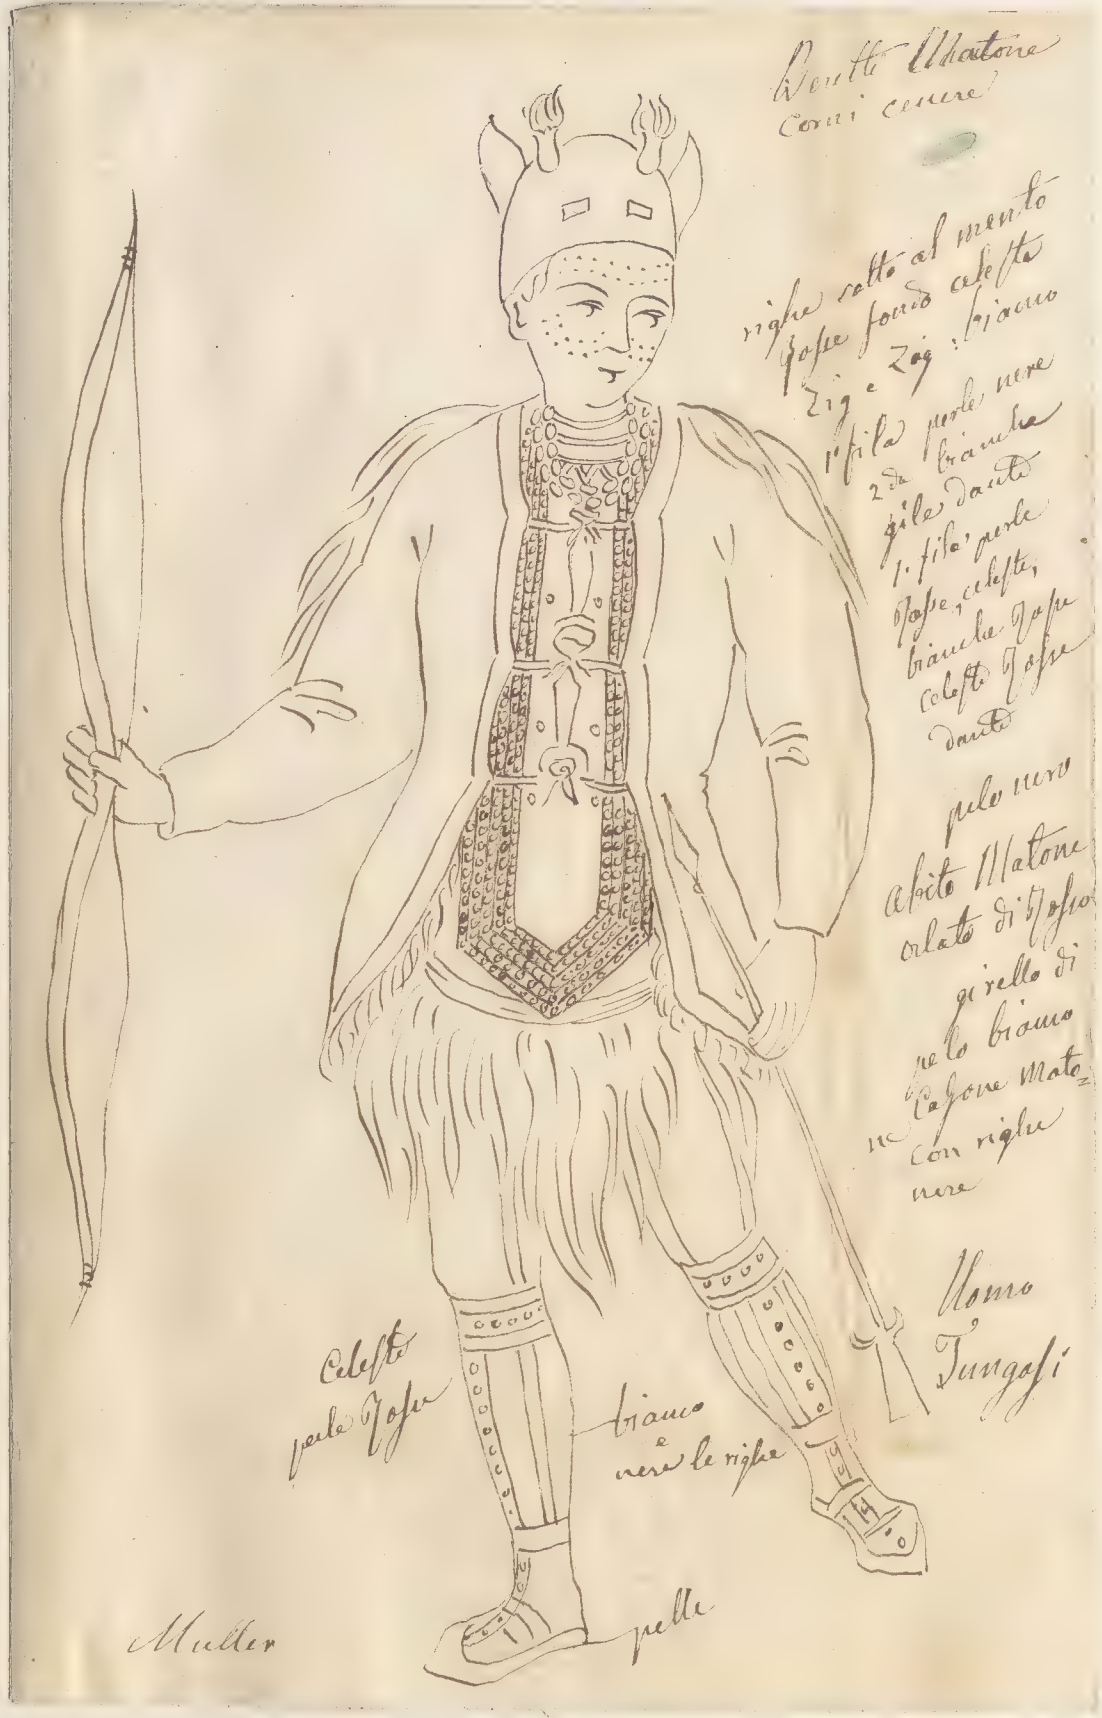 Beretto Matone
Corni cenere
righe sotto al mento
Rosse fondo celeste
Zig e Zag : bianco
1ª fila perle nere
2da bianche
gile danto
1. fila perle
Rosse, celeste,
bianche Rosse
celeste Rosse
danto
pelo nero
abito Matone
orlato di Rosso
girello di
pelo bianco
Calzone Mato=
ne
con righe
nere
Uomo
Tungosi
Celeste
perle Rosse
bianco
e
nere le righe
pelle
Muller